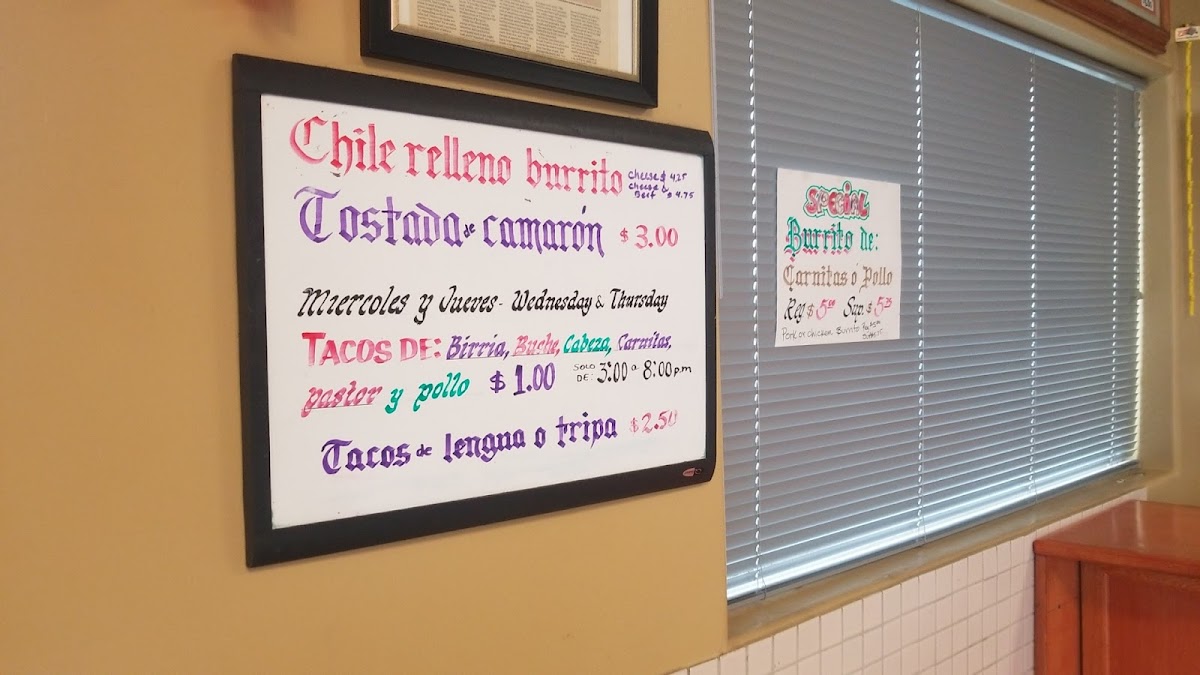 Chile relleno burrito cheese $ 4.25
cheese & beef $ 4.75
Tostada de camarón $ 3.00
Miercoles y Jueves - Wednesday & Thursday
TACOS DE: Birria, Buche, Cabeza, Carnitas,
pastor y pollo $ 1.00 SOLO DE: 3:00 a 8:00 pm
Tacos de lengua o tripa $ 2.50
SPECIAL
Burrito de:
Carnitas o Pollo
Reg $ 5.00 Sup. $
Pork or chicken Burrito